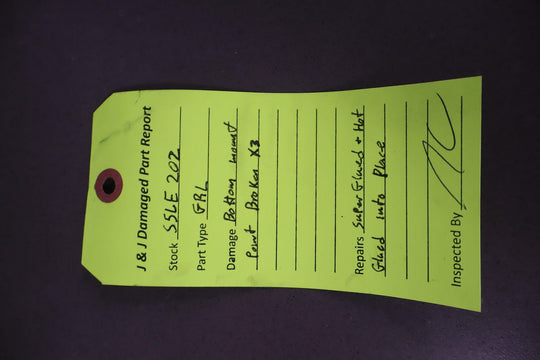 J & J Damaged Part Report
Stock SSLE 202
Part Type GRL
Damage Bottom mount
Point Broken X3
Repairs Super Glued + Hot
Glued Into Place
Inspected By